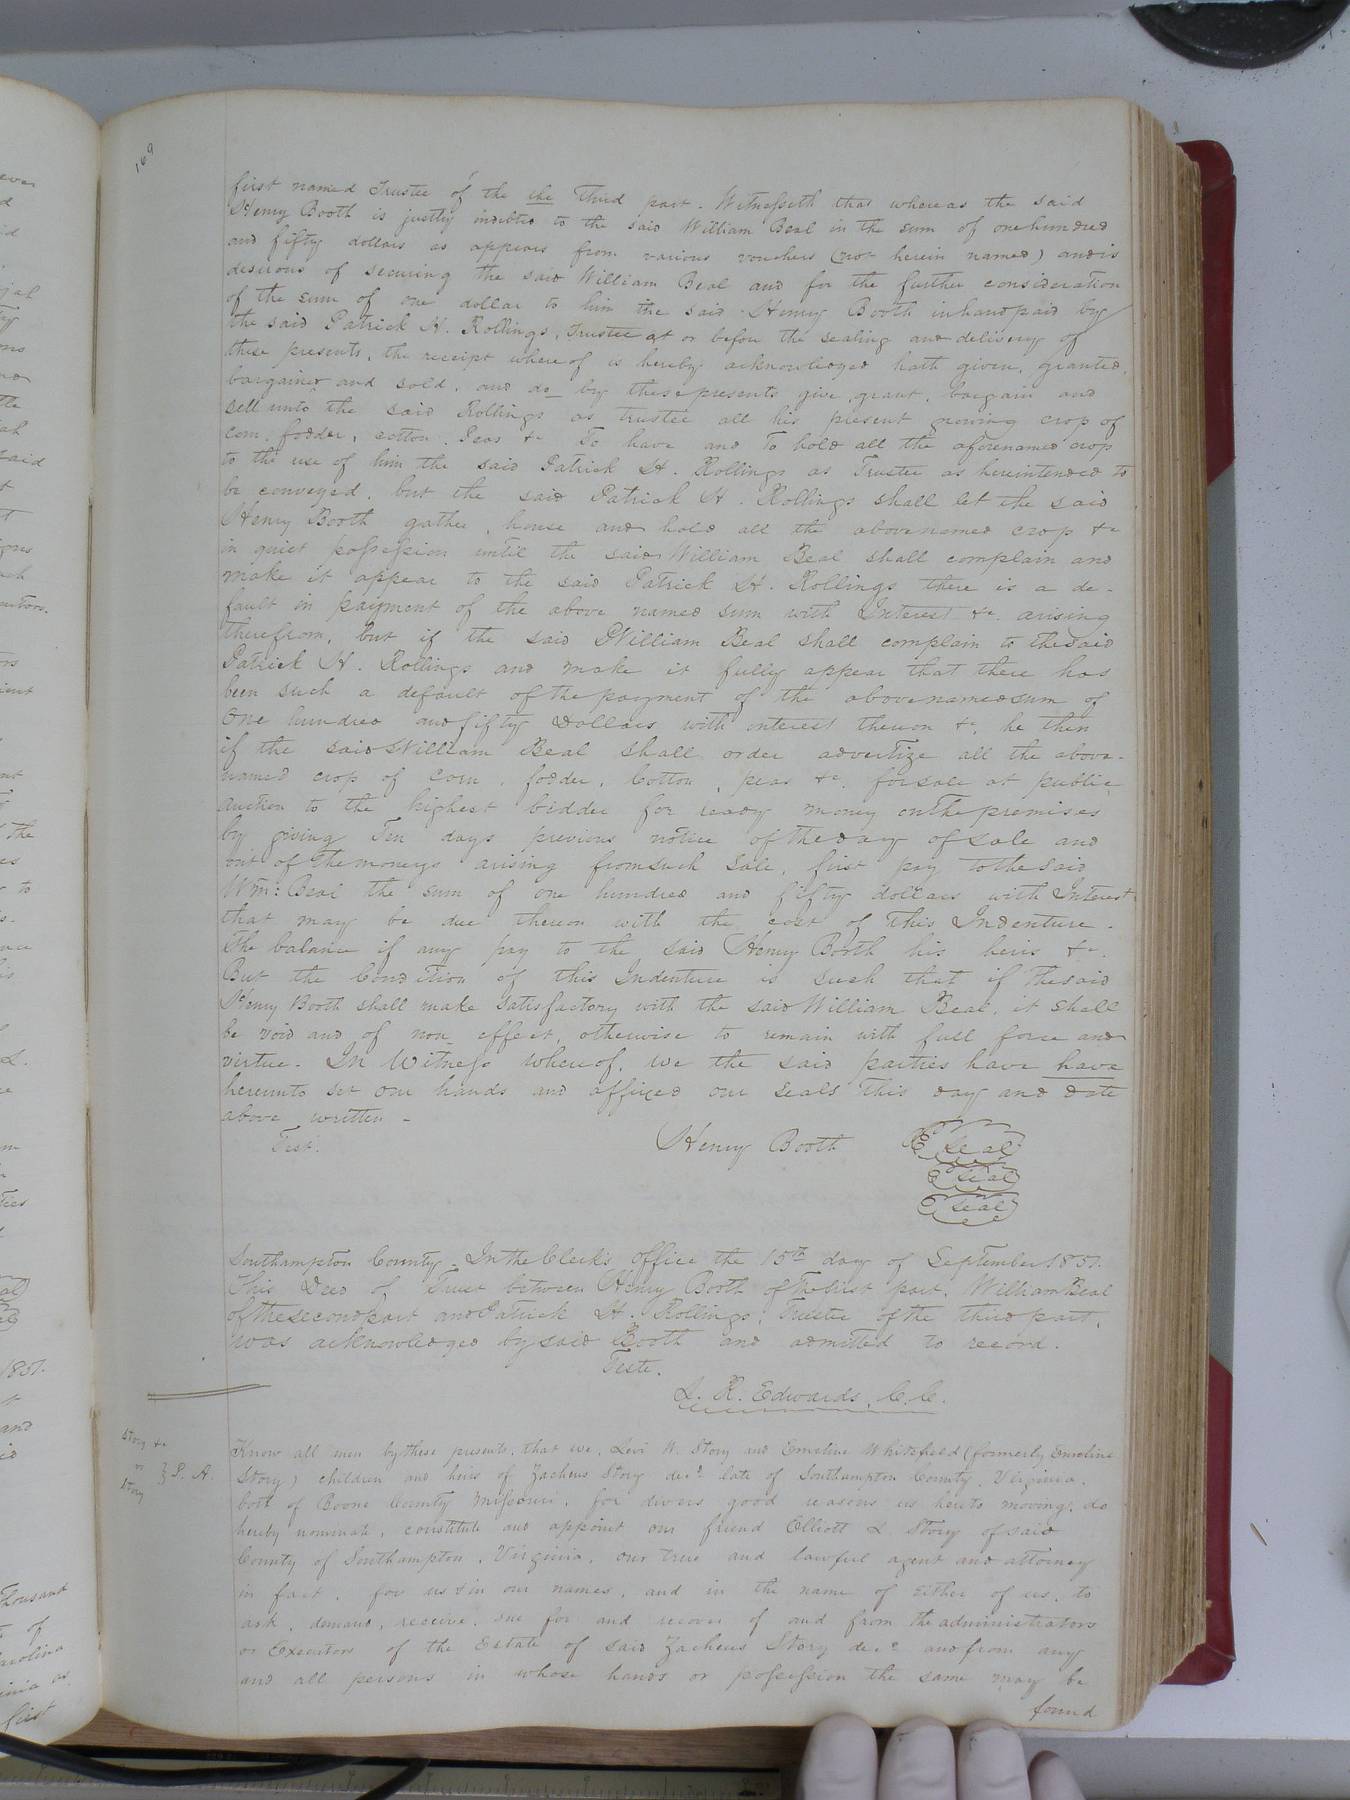 169
first named Trustee of the the Third part. Witnesseth that whereas the said
Henry Booth is justly indebted to the said William Beal in the sum of one hundred
and fifty dollars as appears from various vouchers (not herein named) and is
desirous of securing the said William Beal and for the further consideration
of the sum of one dollar to him the said Henry Booth in hand paid by
the said Patrick H. Rollings, Trustee at or before the sealing and delivery of
these presents, the receipt whereof is hereby acknowledged hath given, granted,
bargained and sold, and do by these presents give, grant, bargain and
sell unto the said Rollings as trustee all his present growing crop of
corn, fodder, cotton, Peas &c To have and To hold all the aforenamed crop
to the use of him the said Patrick H. Rollings as Trustee as hereintended to
be conveyed, but the said Patrick H. Rollings shall let the said
Henry Booth gather, house and hold all the abovenamed crop &c
in quiet possession until the said William Beal shall complain and
make it appear to the said Patrick H. Rollings there is a de-
fault in payment of the above named sum with Interest &c. arising
therefrom, but if the said William Beal shall complain to the said
Patrick H. Rollings and make it fully appear that there has
been such a default of the payment of the abovenamed sum of
One hundred and fifty Dollars with interest thereon &c, he then
if the said William Beal shall order advertize all the above-
named crop of corn, fodder, Cotton, peas &c. for sale at public
auction to the highest bidder for ready money on the premises
by giving Ten days previous notice of the day of sale and
out of the moneys arising from such sale, first pay to the said
Wm: Beal the sum of one hundred and fifty dollars with Interest
that may be due thereon with the cost of this Indenture.
The balance if any pay to the said Henry Booth his heirs &c.
But the Condition of this Indenture is such that if the said
Henry Booth shall make satisfactory with the said William Beal, it shall
be void and of non effect, otherwise to remain with full force and
virtue. In Witness whereof, we the said parties have have
hereunto set our hands and affixed our seals this day and date
above written -
Test.
Henry Booth Seal
Seal
Seal
Southampton County. In the Clerk's office the 15th day of September 1851.
This Deed of Trust between Henry Booth of the first part, William Beal
of the second part and Patrick H. Rollings, Trustee of the third part,
was acknowledged by said Booth and admitted to record.
Teste.
L. R. Edwards, C. C.
Story &c
to } P. A.
Story
Know all men by these presents, that we, Levi W. Story and Emeline Whitefield (formerly Emeline
Story) children and heirs of Zacheus Story decd. late of Southampton County, Virginia,
both of Boone County Missouri, for divers good reasons us hereto moving, do
hereby nominate, constitute and appoint our friend Elliott L. Story of said
County of Southampton, Virginia, our true and lawful agent and attorney
in fact, for us & in our names, and in the name of either of us, to
ask, demand, receive, sue for and recover of and from the administrators
or Executors of the Estate of said Zacheus Story decd and from any
and all persons in whose hands or possession the same may be
found